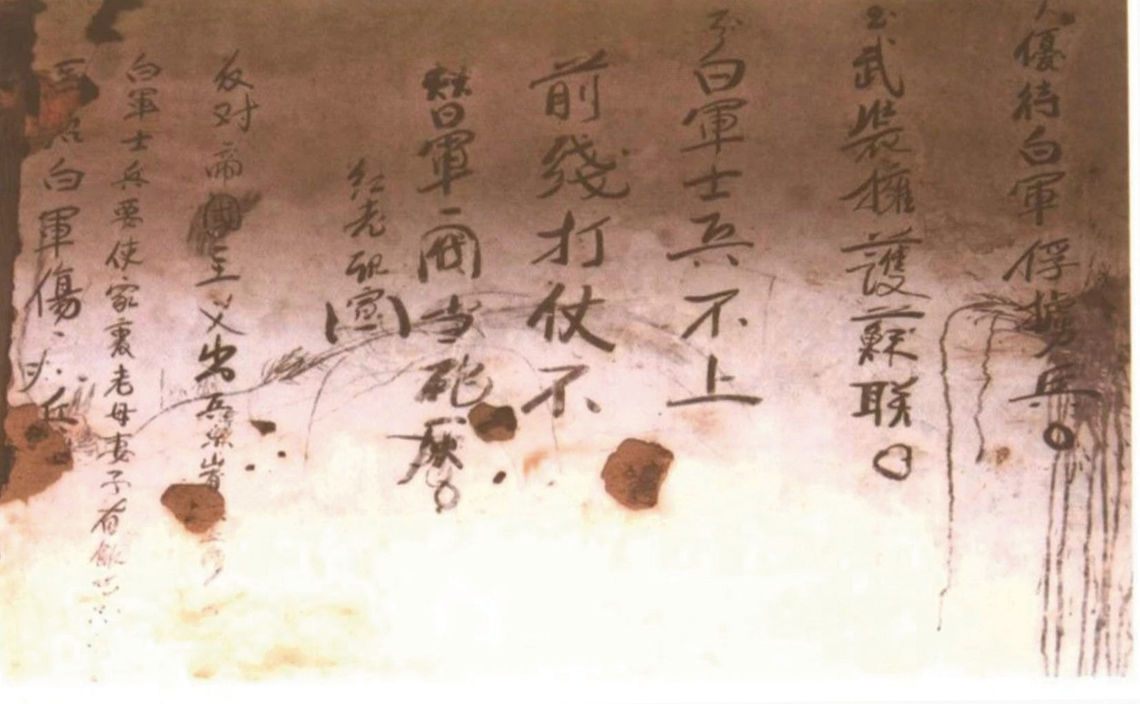 優待白軍俘擄兵。
武裝擁護蘇联。
白軍士兵不上
前綫打仗不
替軍閥当砲灰。
红（宣）
反对帝國主义出兵
白軍士兵要使家裏老母妻子有飯
白軍傷兵